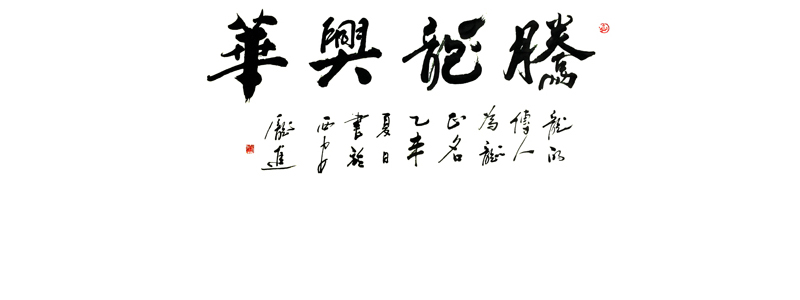 騰龍興華
龍的
傳人
為龍
正名
乙未
夏日
書於
西安
龐進